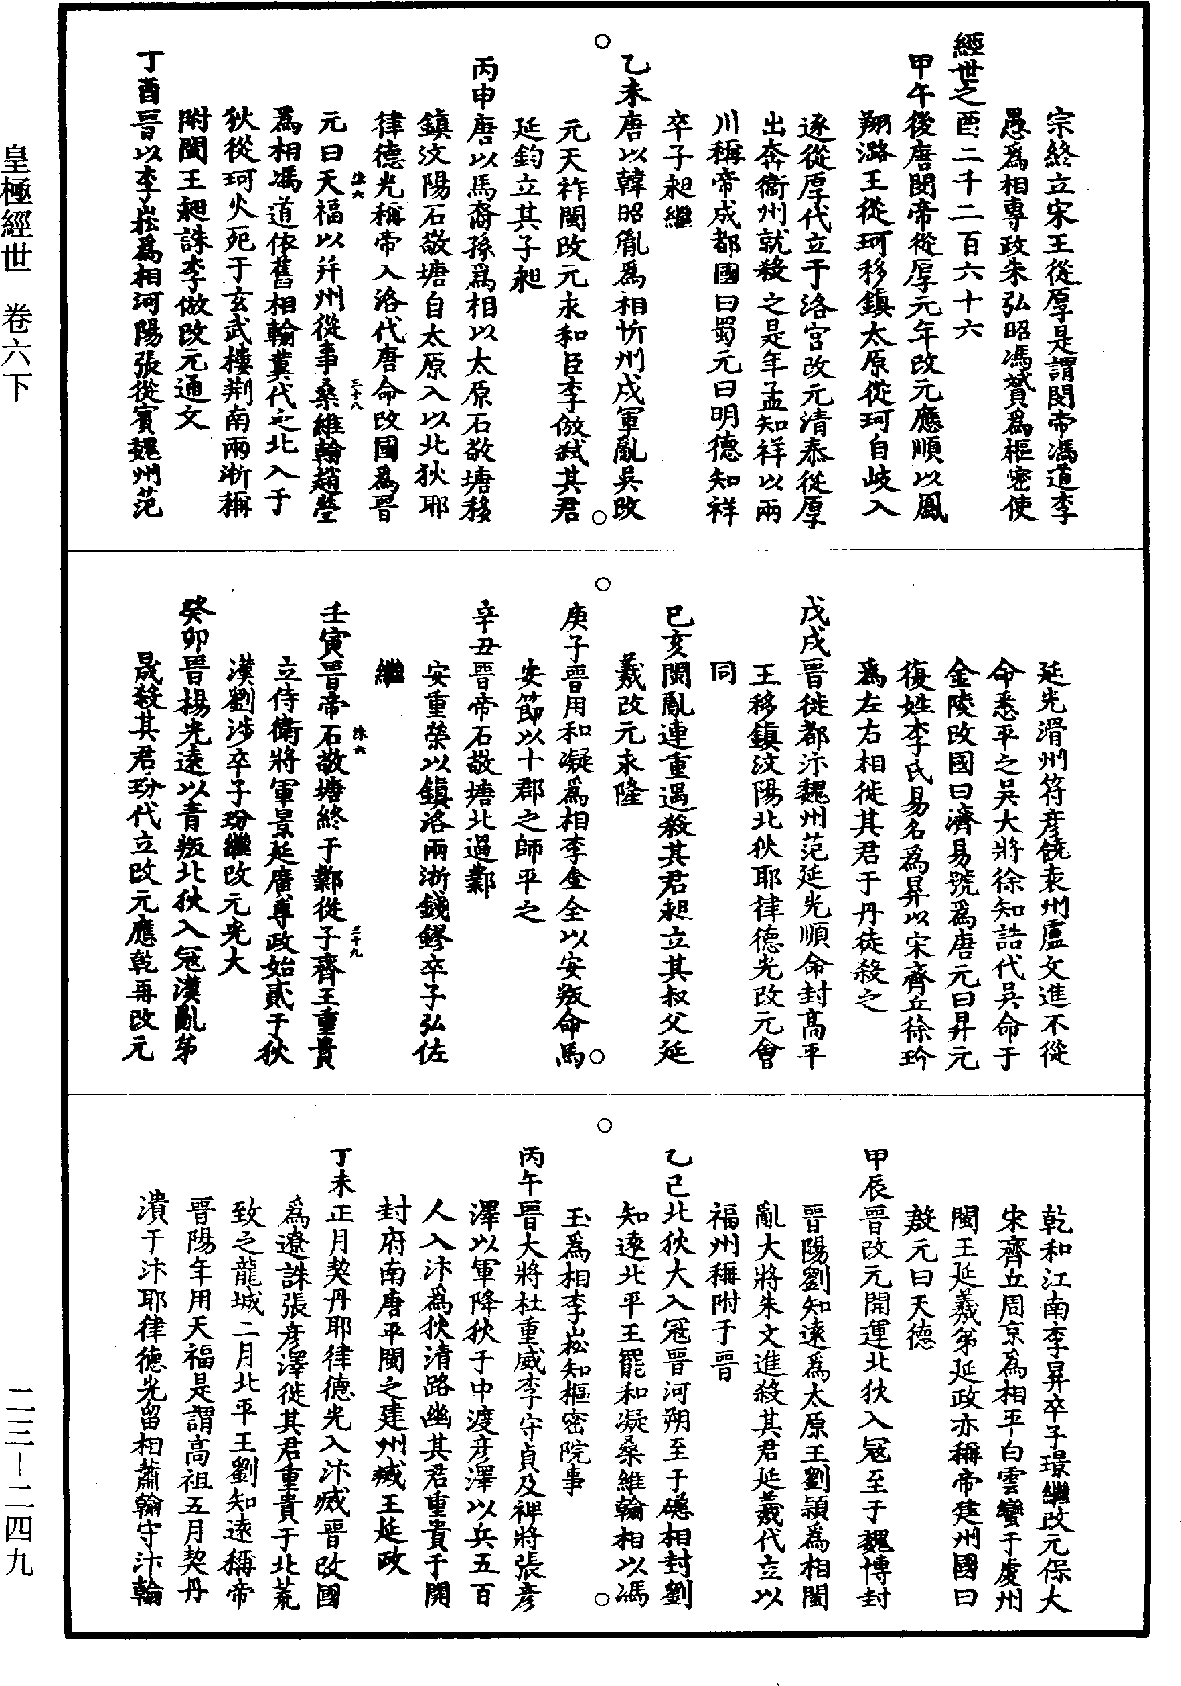 皇極經世　卷六下
宗終立宋王從厚是謂閔帝馮道李
愚爲相專政朱弘昭馮贇爲樞密使
經世之酉二千二百六十六
甲午後唐閔帝從厚元年改元應順以鳳
翔潞王從珂移鎮太原從珂自岐入
逐從厚代立于洛宮改元清泰從厚
出奔衞州就殺之是年孟知祥以兩
川稱帝成都國曰蜀元曰明德知祥
卒子昶繼
乙未唐以韓昭胤爲相忻州戍軍亂吳改
元天祚閩改元永和臣李倣弒其君
延鈞立其子昶
丙申唐以馬裔孫爲相以太原石敬塘移
鎮汶陽石敬塘自太原入以北狄耶
律德光稱帝入洛代唐命改國爲晉
元曰天福以并州從事桑維翰趙瑩
爲相馮道依舊相翰冀代之北入于
狄從珂火死于玄武樓荆南兩浙稱
附閩王昶誅李倣改元通文
丁酉晉以李崧爲相河陽張從賓魏州范
延光滑州符彦饒袁州盧文進不從
命悉平之吳大將徐知誥代吳命于
金陵改國曰濟易號爲唐元曰昇元
復姓李氏易名爲昇以宋齊丘徐玠
爲左右相徙其君于丹徒殺之
戊戌晉徙都汴魏州范延光順命封高平
王移鎮汶陽北狄耶律德光改元會
同
己亥閩亂連重遇殺其君昶立其叔父延
羲改元永隆
庚子晉用和凝爲相李金全以安叛命馬
安節以十郡之師平之
辛丑晉帝石敬塘北過鄴
安重榮以鎮洛兩浙錢鏐卒子弘佐
繼
壬寅晉帝石敬塘終于鄴從子齊王重貴
立侍衞將軍景延廣尊政始貳于狄
漢劉涉卒子玢繼改元光大
癸卯晉楊光遠以青叛北狄入寇漢亂弟
晟殺其君玢代立改元應乾再改元
乾和江南李昇卒子璟繼改元保大
宋齊丘周京爲相平白雲蠻于虔州
閩王延羲弟延政亦稱帝建州國曰
殷元曰天德
甲辰晉改元開運北狄入寇至于魏博封
晉陽劉知遠爲太原王劉頴爲相閩
亂大將朱文進殺其君延羲代立以
福州稱附于晉
乙巳北狄大入寇晉河朔至于相封劉
知遠北平王罷和凝桑維翰相以馮
玉爲相李崧知樞密院事
丙午晉大將杜重威李守貞及裨將張彦
澤以軍降狄于中渡彦澤以兵五百
人入汴爲狄清路幽其君重貴于開
封府南唐平閩之建州臧王延政
丁未正月契丹耶律德光入汴臧晉改國
爲遼誅張彦澤徙其君重貴于北荒
致之龍城二月北平王劉知遠稱帝
晉陽年用天福是謂高祖五月契丹
潰于汴耶律德光留相蕭翰守汴翰
二三－二四九